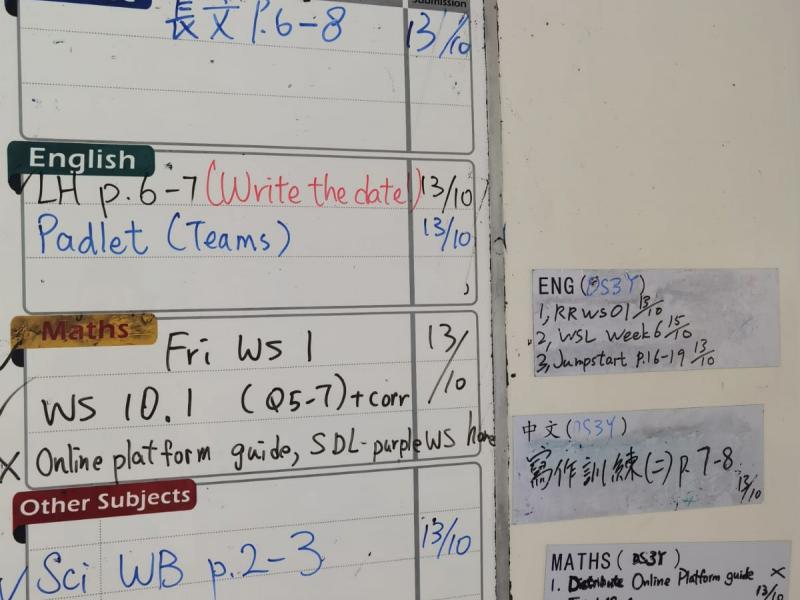 Submission
長文 P.6-8 13/10
English
LH p.6-7 (Write the date) 13/10
Padlet (Teams) 13/10
Maths
Fri WS 1 13/
WS 10.1 (Q5-7)+corr /10
Online platform guide, SDL-purple WS home
Other Subjects
Sci WB p.2-3 13/10
ENG (DS3Y)
1, RR WS01 13/10
2, WSL Week 6 15/10
3, Jumpstart P.16-19 13/10
中文 (DS3Y)
寫作訓練(二) p.7-8 13/10
MATHS ( DS3Y )
1. Distribute Online Platform guide ×
13/10